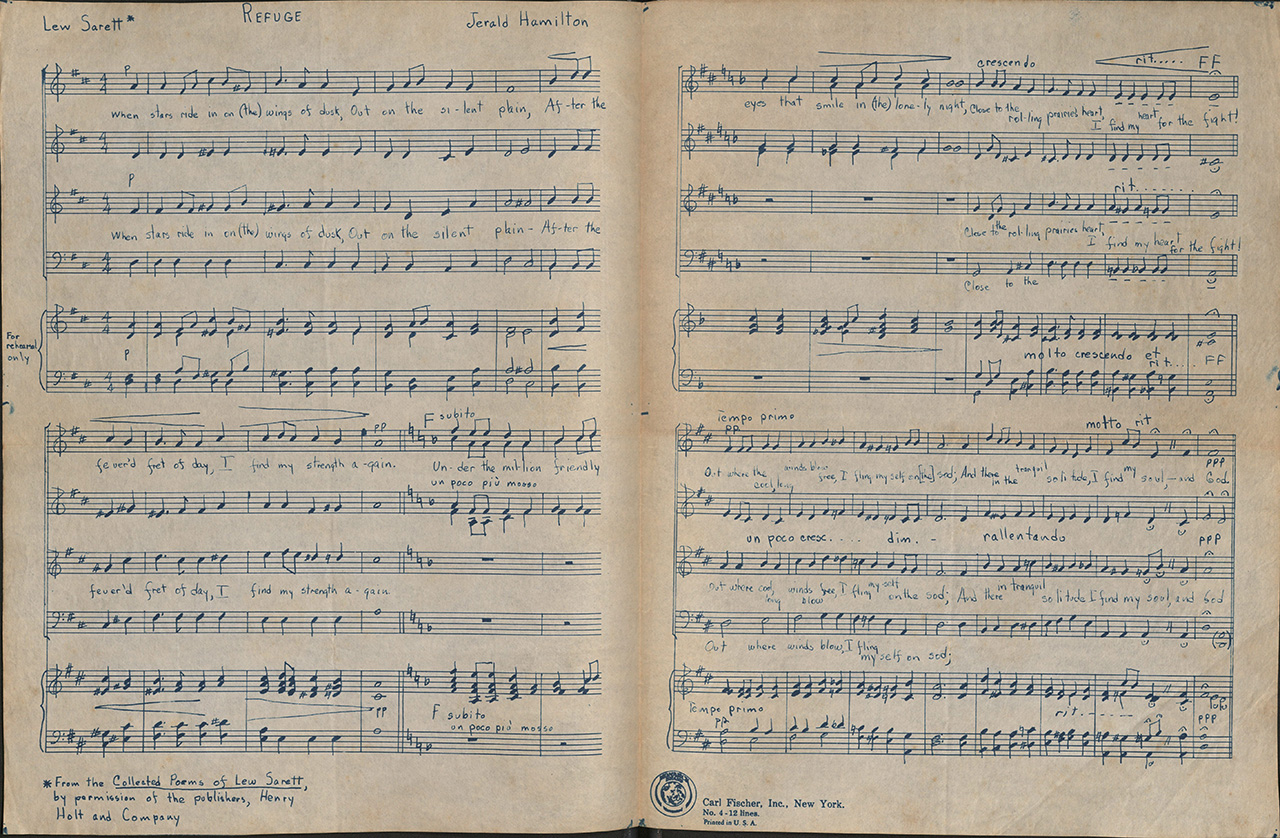 Lew Sarett*
REFUGE
Jerald Hamilton
P
When stars ride in on (the) wings of dusk, Out on the si-lent plain, Af-ter the
P
When stars ride in on (the) wings of dusk, Out on the silent plain- Af-ter the
For rehearsal only
P
F subito
PP
fever'd fret of day, I find my strength a-gain. Un-der the million friendly
un poco più mosso
fever'd fret of day, I find my strength a-gain
PP
F subito
un poco più mosso
*From the Collected Poems of Lew Sarett,
by permission of the publishers, Henry
Holt and Company
crescendo rit..... FF
eyes that smile in (the) lone-ly night, Close to the rol-ling prairies heart, I find my heart for the fight!
rit.........
Close to the rol-ling prairies heart, I find my heart for the fight!
Close to the
molto crescendo et rit..... FF
Tempo primo
PP
molto rit
PPP
Out where the cool, long winds blow free, I fling my self on [the] sod; And there in the tranquil solitude, I find my soul,- and God.
un poco cresc..... dim. - rallentando PPP
Out where cool, long winds blow free, I fling my self on the sod; And there in tranquil solitude I find my soul, and God
Out where winds blow, I fling my self on sod;
Tempo primo
PP
rit.------
PPP
Carl Fischer, Inc., New York.
No. 4 - 12 lines.
Printed in U. S. A.